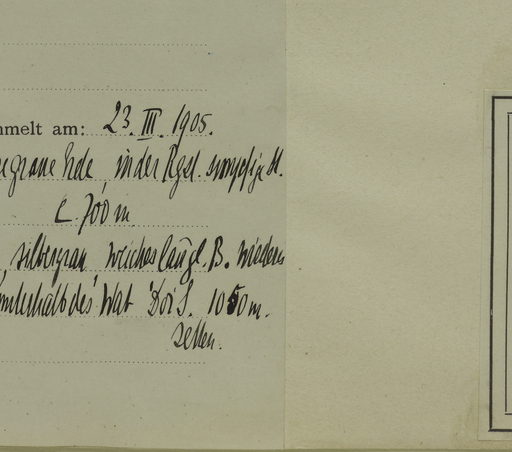 mmelt am: 23. III. 1905.
graue Erde, in der Rgel.
C. 700 m
silbergrau weiches läugl. B.
unterhalb des Wat Doi S. 1050 m.
selten.